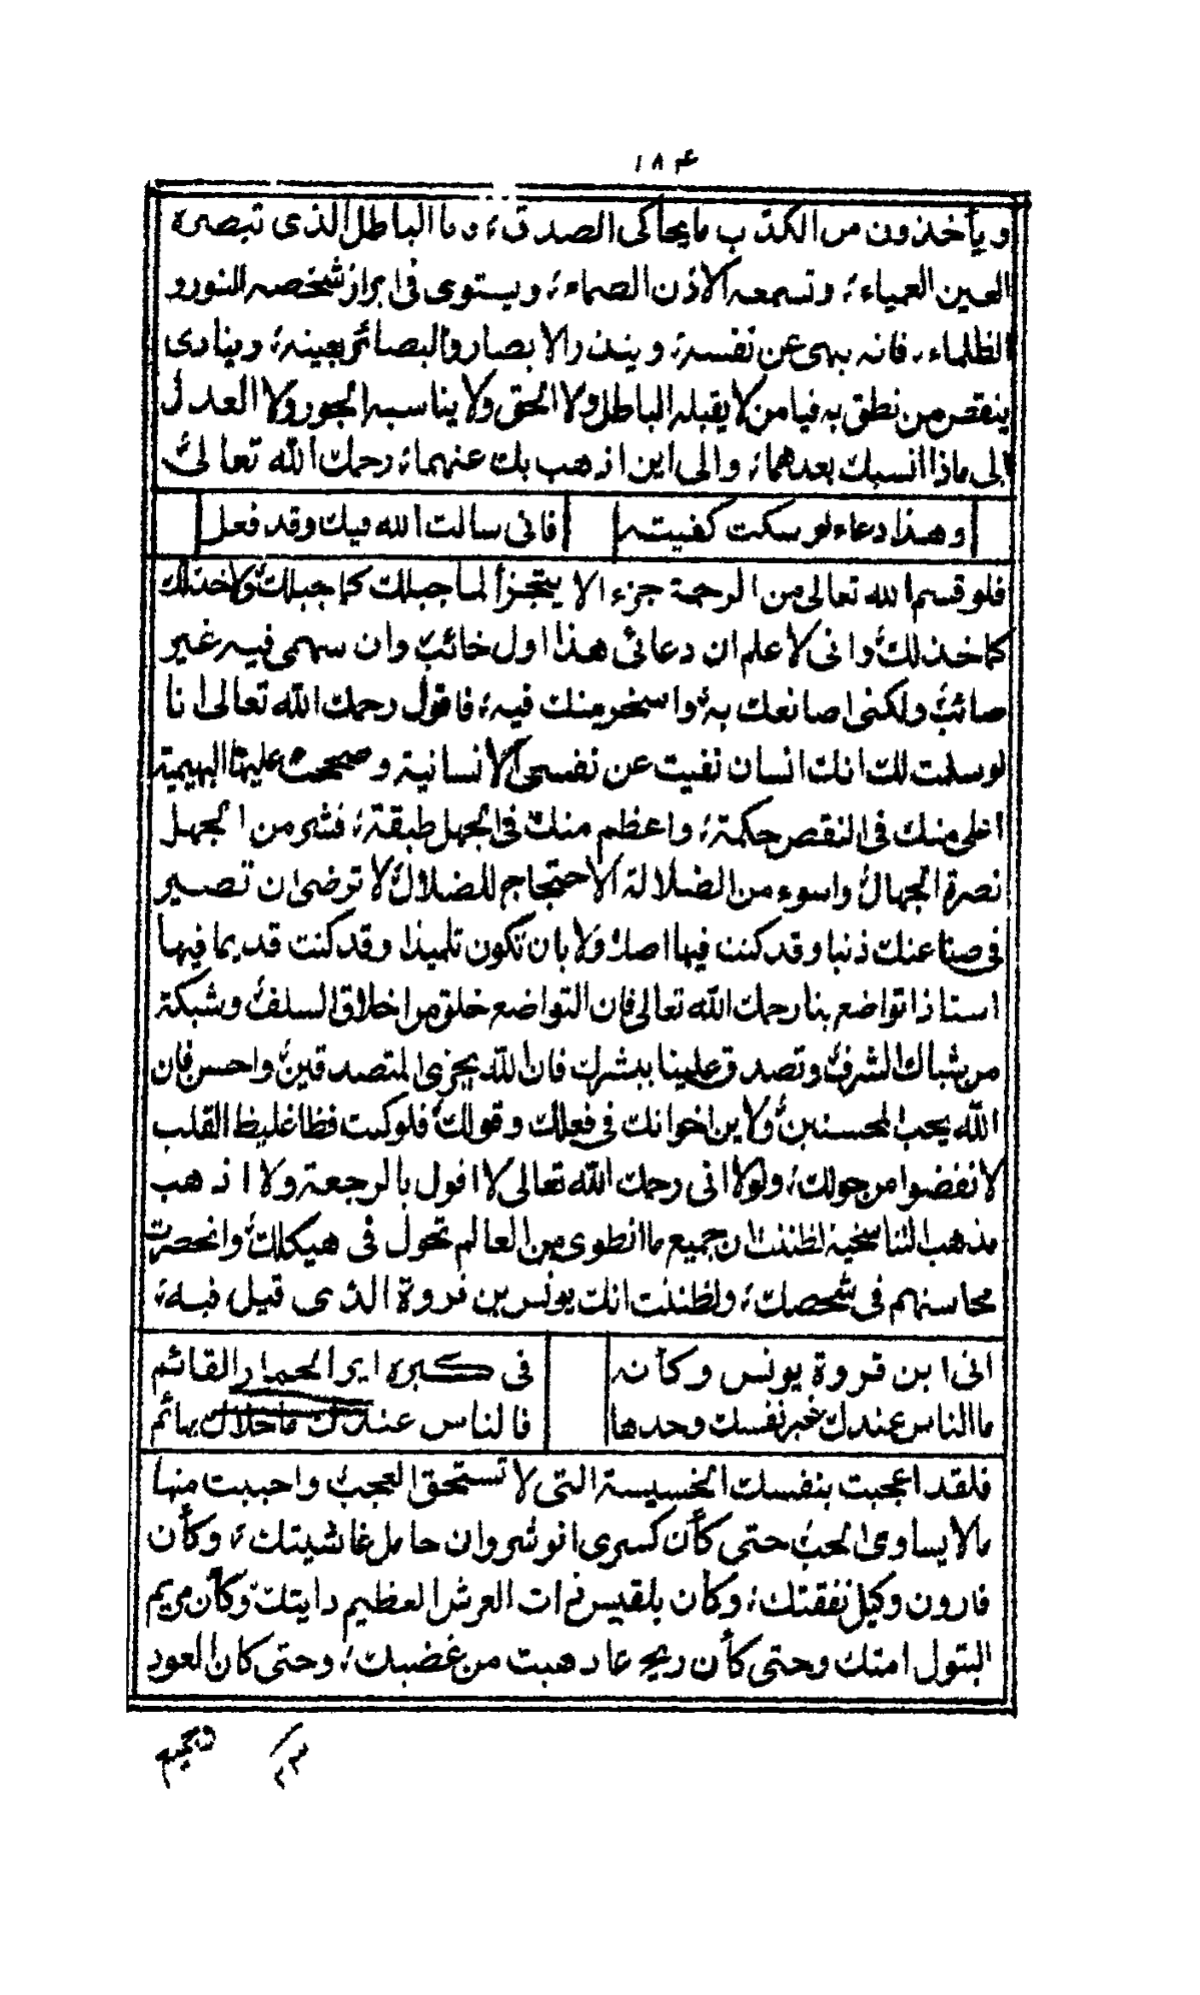 ۱۸۴
ويأخذون من الكذب ما يحاكى الصدق؛ وما الباطل الذى تبصره
العين العمياء؛ وتسمعه الاذن الصماء؛ ويستوى فى ابراز شخصه النور و
الظلماء، فانه ينهى عن نفسه؛ وينذر الابصار والبصائر بعينه؛ وينادى
بنقص من نطق به فيا من لا يقبله الباطل ولا الحق ولا يناسبه الجور ولا العدل
الى ماذا انسبك بعدهما؛ والى اين اذهب بك عنهما؛ رحمك الله تعالى
وهذا دعاء لو سكت كفيته فانى سالت الله فيك وقد فعل
فلو قسم الله تعالى من الرحمة جزء الا يتجزأ لما جبلك كما جبلك ولا خذلك
كما خذلك وانى لاعلم ان دعائى هذا اول خائب وان سهمى فيه غير
صائب ولكنى اصانعك به واسخر منك فيه؛ فاقول رحمك الله تعالى انا
لو سلمت لك انك انسان نفيت عن نفسى الانسانية وصححت عليها البهيمية
اعلى منك فى النقص حكمة؛ واعظم منك فى الجهل طبقة؛ فشر من الجهل
نصرة الجهال واسوء من الضلالة الاحتجاج للضلال لا ترضى ان تصير
فى صناعتك ذنبا وقد كنت فيها اصلا ولا بان تكون تلميذا وقد كنت قديما فيها
استاذا تواضع بنا رحمك الله تعالى فان التواضع خلق من اخلاق السلف وشبكة
من شباك الشرف وتصدق علينا ببشرك فان الله يجزى المتصدقين واحسن فان
الله يحب المحسنين ولاين اخوانك فى فعلك وقولك فلو كنت فظا غليظ القلب
لانفضوا من حولك؛ ولولا انى رحمك الله تعالى لا اقول بالرجعة ولا اذهب
مذهب التناسخية لظننت ان جميع ما انطوى من العالم تحول فى هيكلك وانحصرت
محاسنهم فى شخصك؛ ولظننت انك يونس بن فروة الذى قيل فيه؛
انى ابن فروة يونس وكأنه فى كبره اير الحمار القائم
ما الناس عندك غير نفسك وحدها فالناس عندك ما خلاك بهائم
فلقد اعجبت بنفسك الخسيسة التى لا تستحق العجب واحببت منها
ما لا يساوى الحب حتى كأن كسرى انوشروان حامل غاشيتك، وكأن
قارون وكيل نفقتك؛ وكأن بلقيس ذات العرش العظيم دايتك وكأن مريم
البتول امتك وحتى كأن ريح عاد هبت من غضبك؛ وحتى كان العود